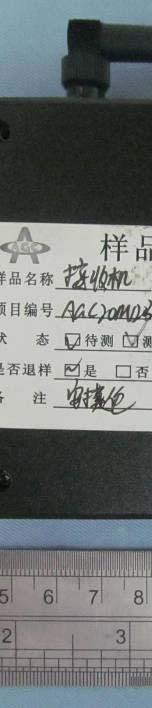 AGC
样品
样品名称 接收机
项目编号 AGC20MD3
状 态 ☑待测 ☑测
是否退样 ☑是 ☐否
备 注
5 6 7 8
2 3